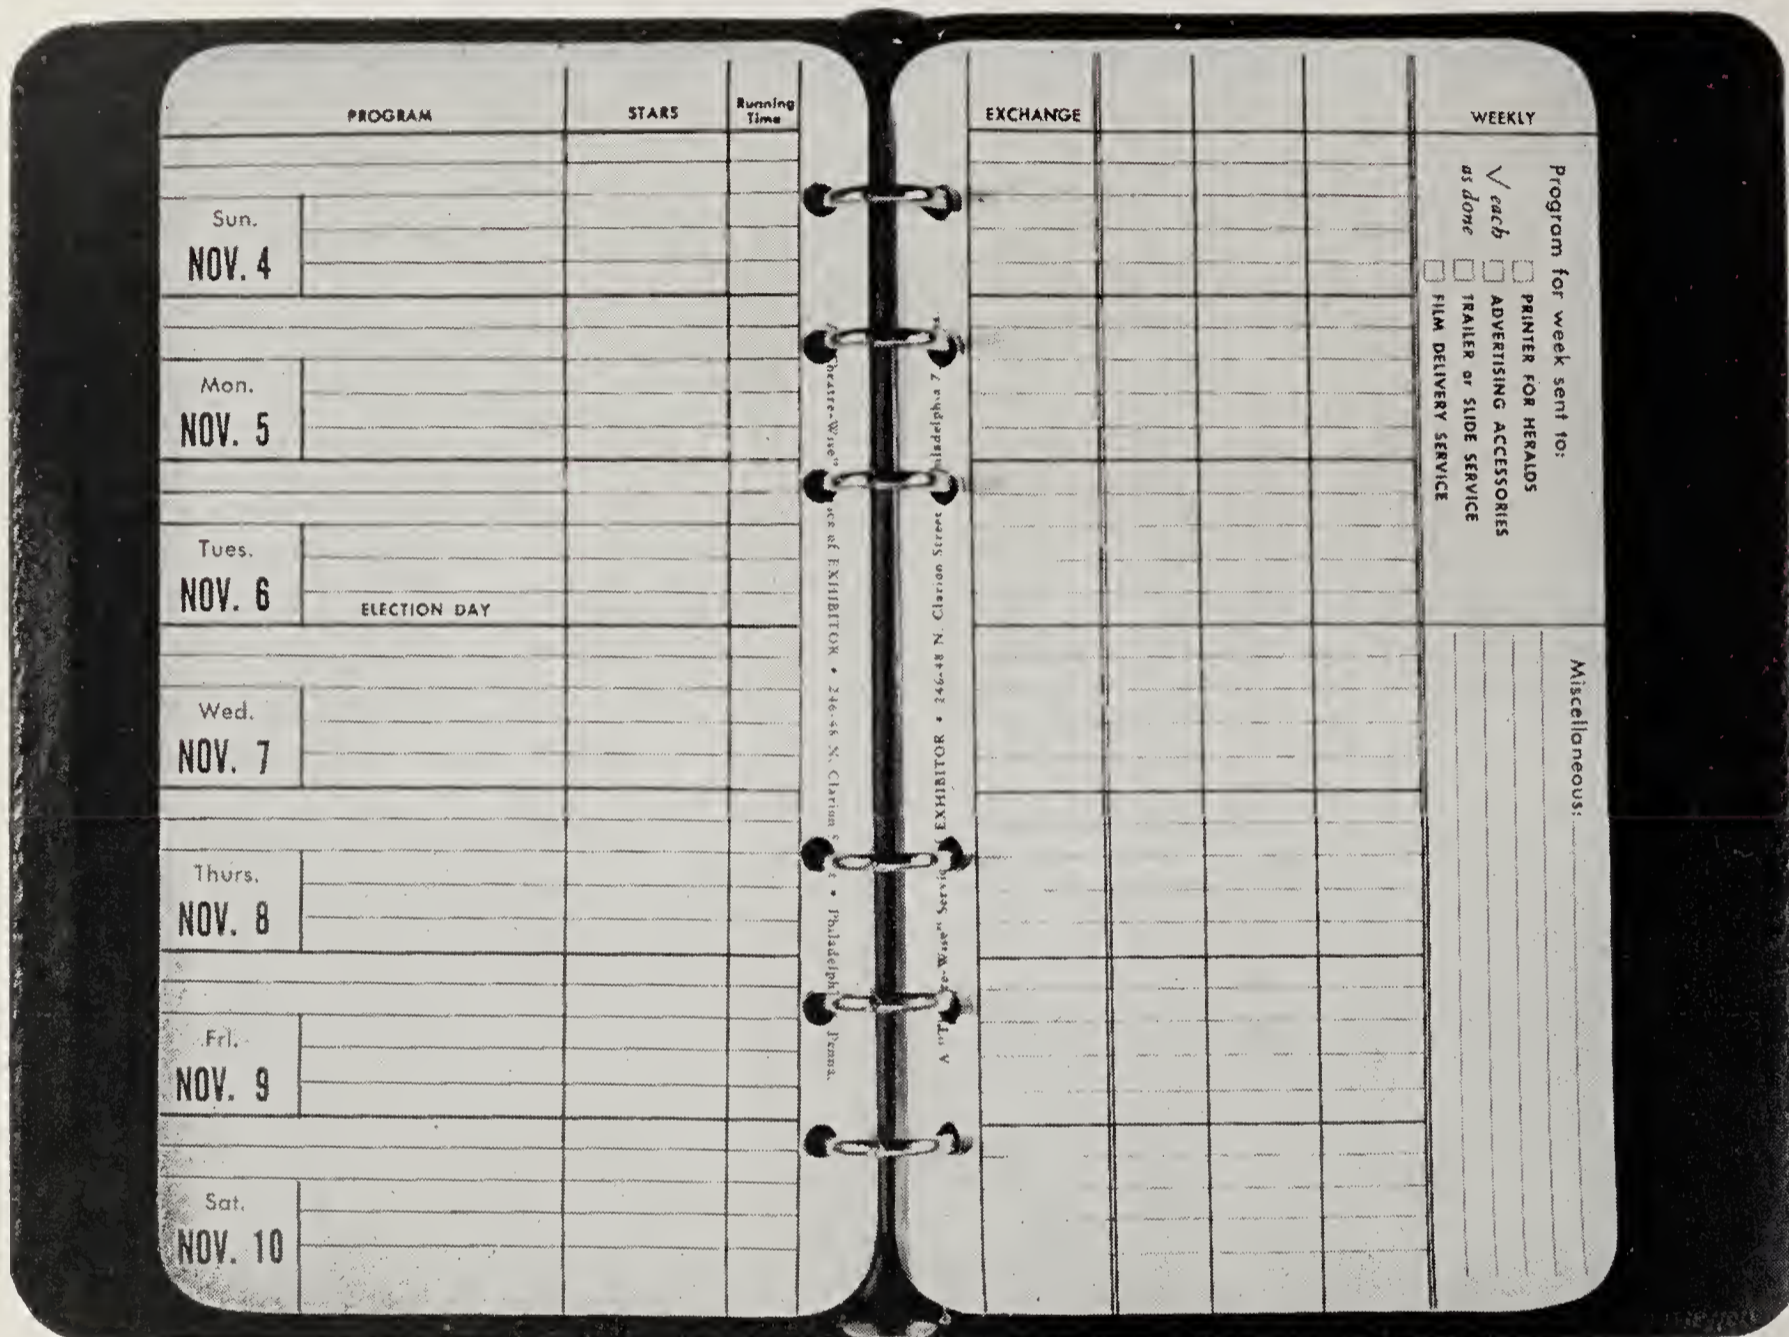 PROGRAM
STARS
Running
Time
Sun.
NOV. 4
Mon.
NOV. 5
Tues.
NOV. 6
ELECTION DAY
Wed.
NOV. 7
Thurs.
NOV. 8
Fri.
NOV. 9
Sat.
NOV. 10
Theatre-Wise" of EXHIBITOR • 246-48 N. Clarion • Penna.
A EXHIBITOR • 246-48 N. Clarion Street 7
EXCHANGE
WEEKLY
Program for week sent to:
√ each
as done
PRINTER FOR HERALDS
ADVERTISING ACCESSORIES
TRAILER or SLIDE SERVICE
FILM DELIVERY SERVICE
Miscellaneous: